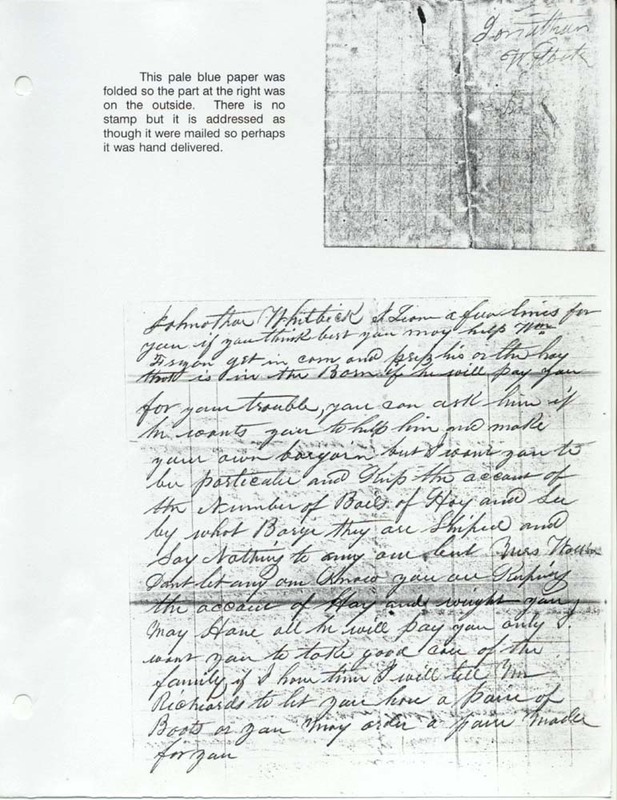 This pale blue paper was
folded so the part at the right was
on the outside. There is no
stamp but it is addressed as
though it were mailed so perhaps
it was hand delivered.
Jonathan
Johnothan Whitbeck I Leave a few lines for
you if you think best you may help
get in corn and his or the hay
that is in the Born if he will pay you
for your trouble you can ask him if
he wants you to help him and make
your own borgain but I want you to
be particuler and Kip the account of
the Number of Bails of Hay and See
by what Barge they are Shiped and
Say Nothing to any one but Mrs
Dont let any one Know you are Kuping
the account of Hay and weight you
May Have all he will pay you only I
want you to take good care of the
family if I have time I will tell Mr
Richards to let you have a paire of
Boots or you may order a paire Made
for you